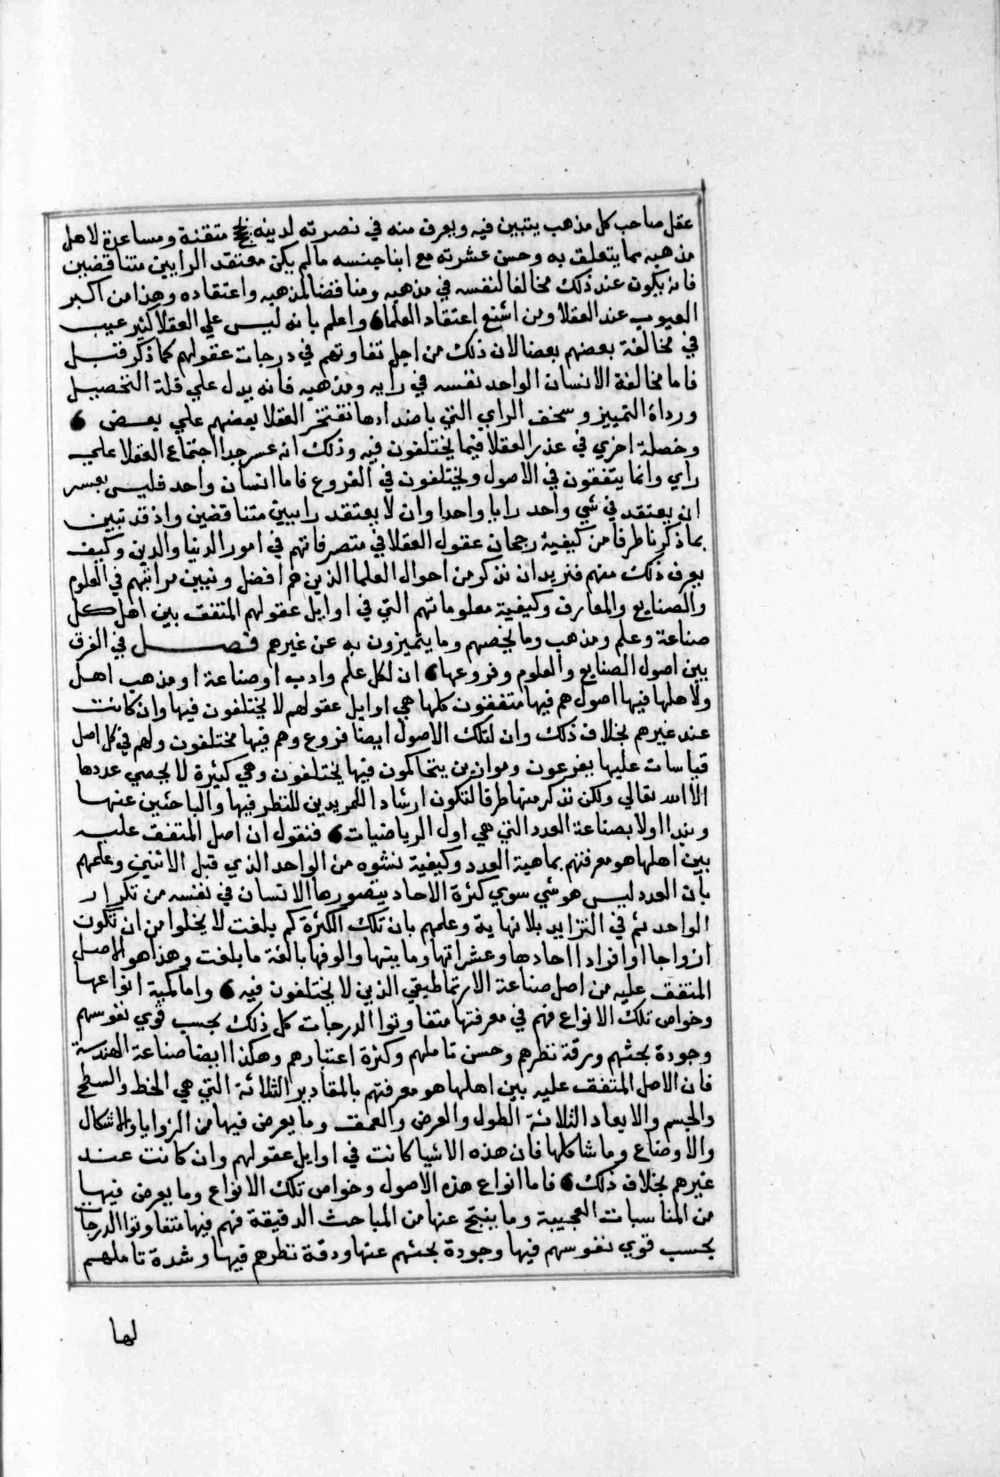 عقل صاحب كل مذهب يتبين فيه ويعرف منه في نصرته لدينه متقنة ومساعدة لاهل
مذهبه بما يتعلق به وحسن عشرته مع ابنا جنسه مالم يكن معتقد الرايين متناقضين
فانه يكون عند ذلك مخالفا لنفسه في مذهبه ومناقضا لمذهبه واعتقاده وهذا من اكبر
العيوب عند العقلا ومن اشنع اعتقاد العلما واعلم بانه ليس علي العقلا كثير عيب
في مخالفة بعضهم بعضا لان ذلك من اجل تفاوتهم في درجات عقولهم كما ذكر قبل
فاما مخالفة الانسان الواحد نفسه في رايه ومذهبه فانه يدل علي قلة التحصيل
ورداة التمييز وسخف الراي التي باضدادها تفتخر العقلا بعضهم علي بعض
وخصلة اخري في عذر العقلا فيما يختلفون فيه وذلك انه عسر جدا اجتماع العقلا علي
راي وانما يتفقون في الاصول ويختلفون في الفروع فاما انسان واحد فليس بعسر
ان يعتقد في شي واحد رايا واحدا وان لا يعتقد رايين متناقضين واذ قد تبين
بما ذكرنا طرفا من كيفية رجحان عقول العقلا في متصرفاتهم في امور الدنيا والدين وكيف
يعرف ذلك منهم فنريد ان نذكر من احوال العلما الذين هم افضل ونبين مراتبهم في العلوم
والصنايع والمعارف وكيفية معلوماتهم التي في اوايل عقولهم المتفق بين اهل كل
صناعة وعلم ومذهب وما يخصهم وما يتميزون به عن غيرهم فصل في الفرق
بين اصول الصنايع والعلوم وفروعها ان لكل علم وادب او صناعة او مذهب اهل
ولاهلها فيها اصول هم فيها متفقون كلها هي اوايل عقولهم لا يختلفون فيها وان كانت
عند غيرهم بخلاف ذلك وان لتلك الاصول ايضا فروع وهم فيها مختلفون ولهم في كل اصل
قياسات عليها يفرعون وموازين يتحاكمون فيها يختلفون وهي كثيرة لا يحصي عددها
الا الله تعالي ولكن نذكر منها طرفا لتكون ارشادا للمريدين للنظر فيها والباحثين عنها
ونبدا اولا بصناعة العدد التي هي اول الرياضيات فنقول ان اصل المتفق عليه
بين اهلها هو معرفتهم بماهية العدد وكيفية نشوه من الواحد الذي قبل الاثنين وعلمهم
بان العدد ليس هو شي سوي كثرة الاحاد يتصورها الانسان في نفسه من تكرار
الواحد ثم في التزايد بلا نهاية وعلمهم بان تلك الكثرة كم بلغت لا يخلوا من ان تكون
ازواجا او افرادا احادها وعشراتها وماييتها والوفها بالغة ما بلغت وهذا هو الاصل
المتفق عليه من اصل صناعة الارتماطيقي الذي لا يختلفون فيه واما كمية انواعها
وخواص تلك الانواع فهم في معرفتها متفاوتوا الدرجات كل ذلك بحسب قوي نفوسهم
وجودة بحثهم ورقة نظرهم وحسن تاملهم وكثرة اعتبارهم وهكذا ايضا صناعة الهندسة
فان الاصل المتفق عليه بين اهلها هو معرفتهم بالمقادير الثلاثة التي هي الخط والسطح
والجسم والابعاد الثلاثة الطول والعرض والعمق وما يعرض فيها من الزوايا والاشكال
والاوضاع وما شاكلها فان هذه الاشيا كانت في اوايل عقولهم وان كانت عند
غيرهم بخلاف ذلك فاما انواع هذه الاصول وخواص تلك الانواع وما يعرض فيها
من المناسبات العجيبة وما ينتج عنها من المباحث الدقيقة فهم فيها متفاوتوا الدرجات
بحسب قوي نفوسهم فيها وجودة بحثهم عنها ودقة نظرهم فيها وشدة تاملهم
لها